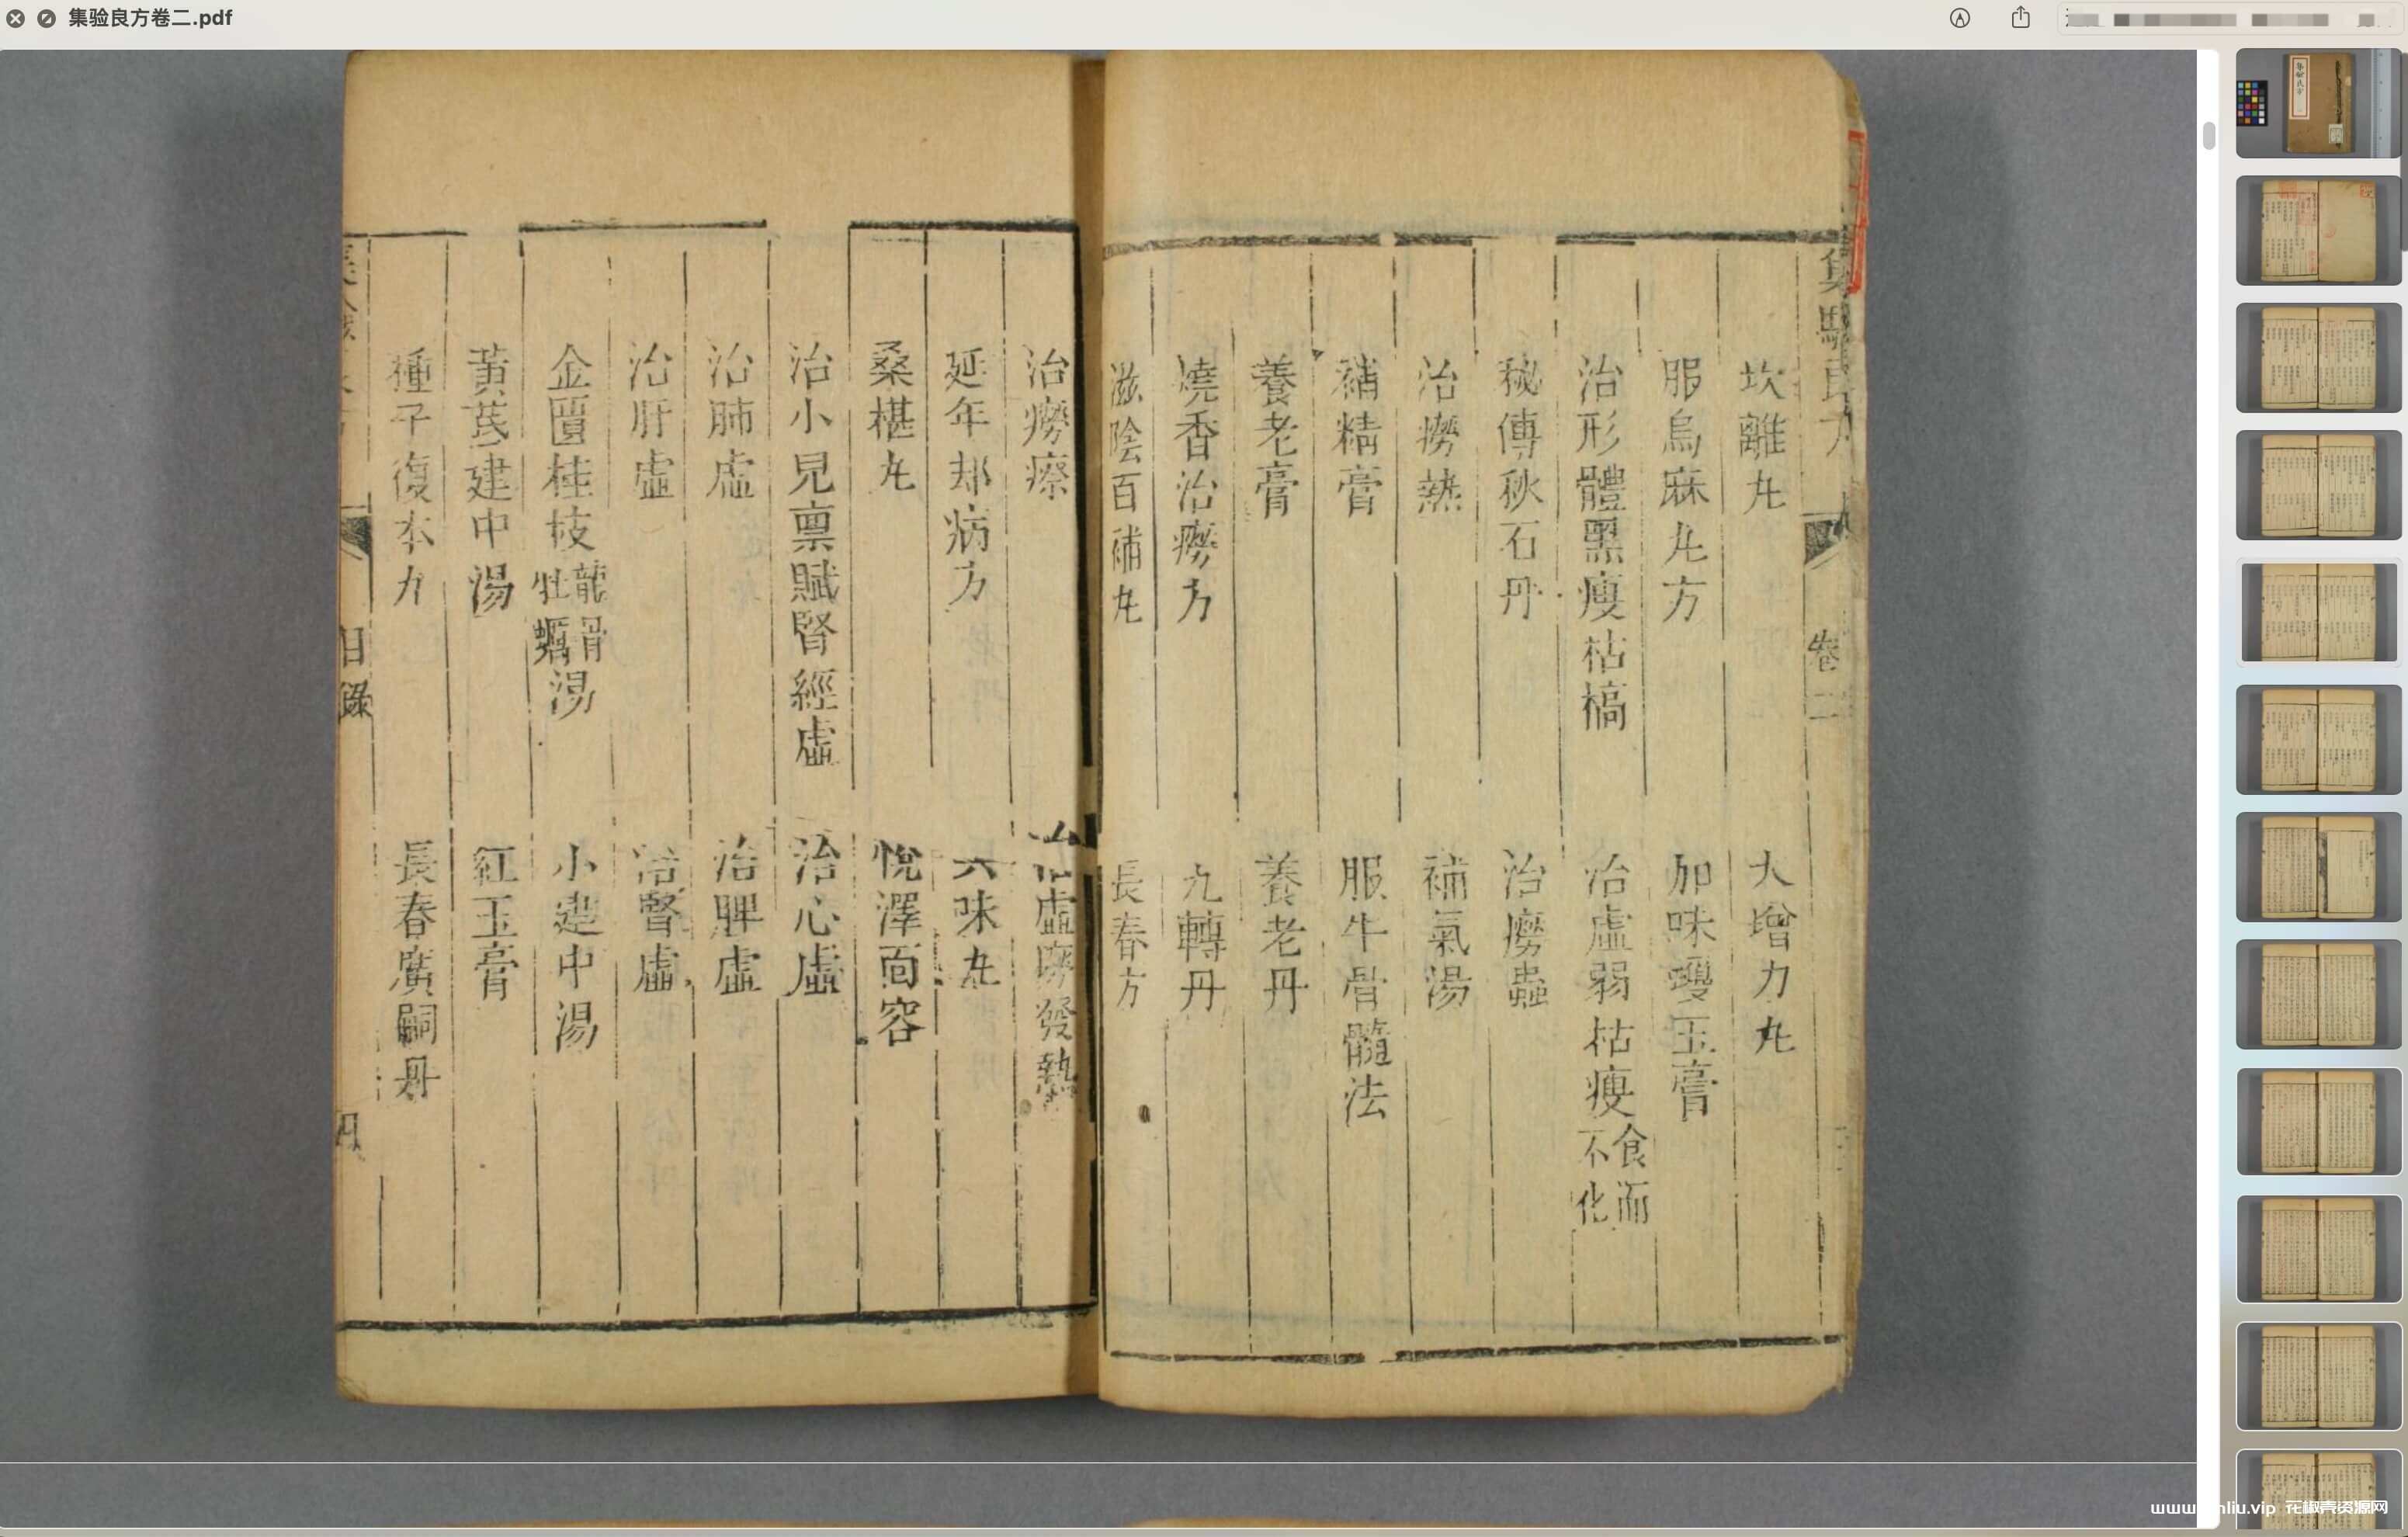 集验良方卷二.pdf
集驗良方
卷二
坎離丸
大增力丸
服烏麻丸方
加味瓊玉膏
治形體黑瘦枯槁
治虛弱枯瘦食而不化
秘傳秋石丹
治癆蟲
治癆熱
補氣湯
補精膏
服牛骨髓法
養老膏
養老丹
燒香治癆方
九轉丹
滋陰百補丸
長春方
治癆瘵
治虛癆發熱
延年却病方
六味丸
桑椹丸
悅澤面容
治小兒禀賦腎經虛
治心虛
治肺虛
治脾虛
治肝虛
治腎虛
金匱桂枝龍骨牡蠣湯
小建中湯
黃茋建中湯
紅玉膏
種子復本丸
長春廣嗣丹
目錄
花椒壳资源网